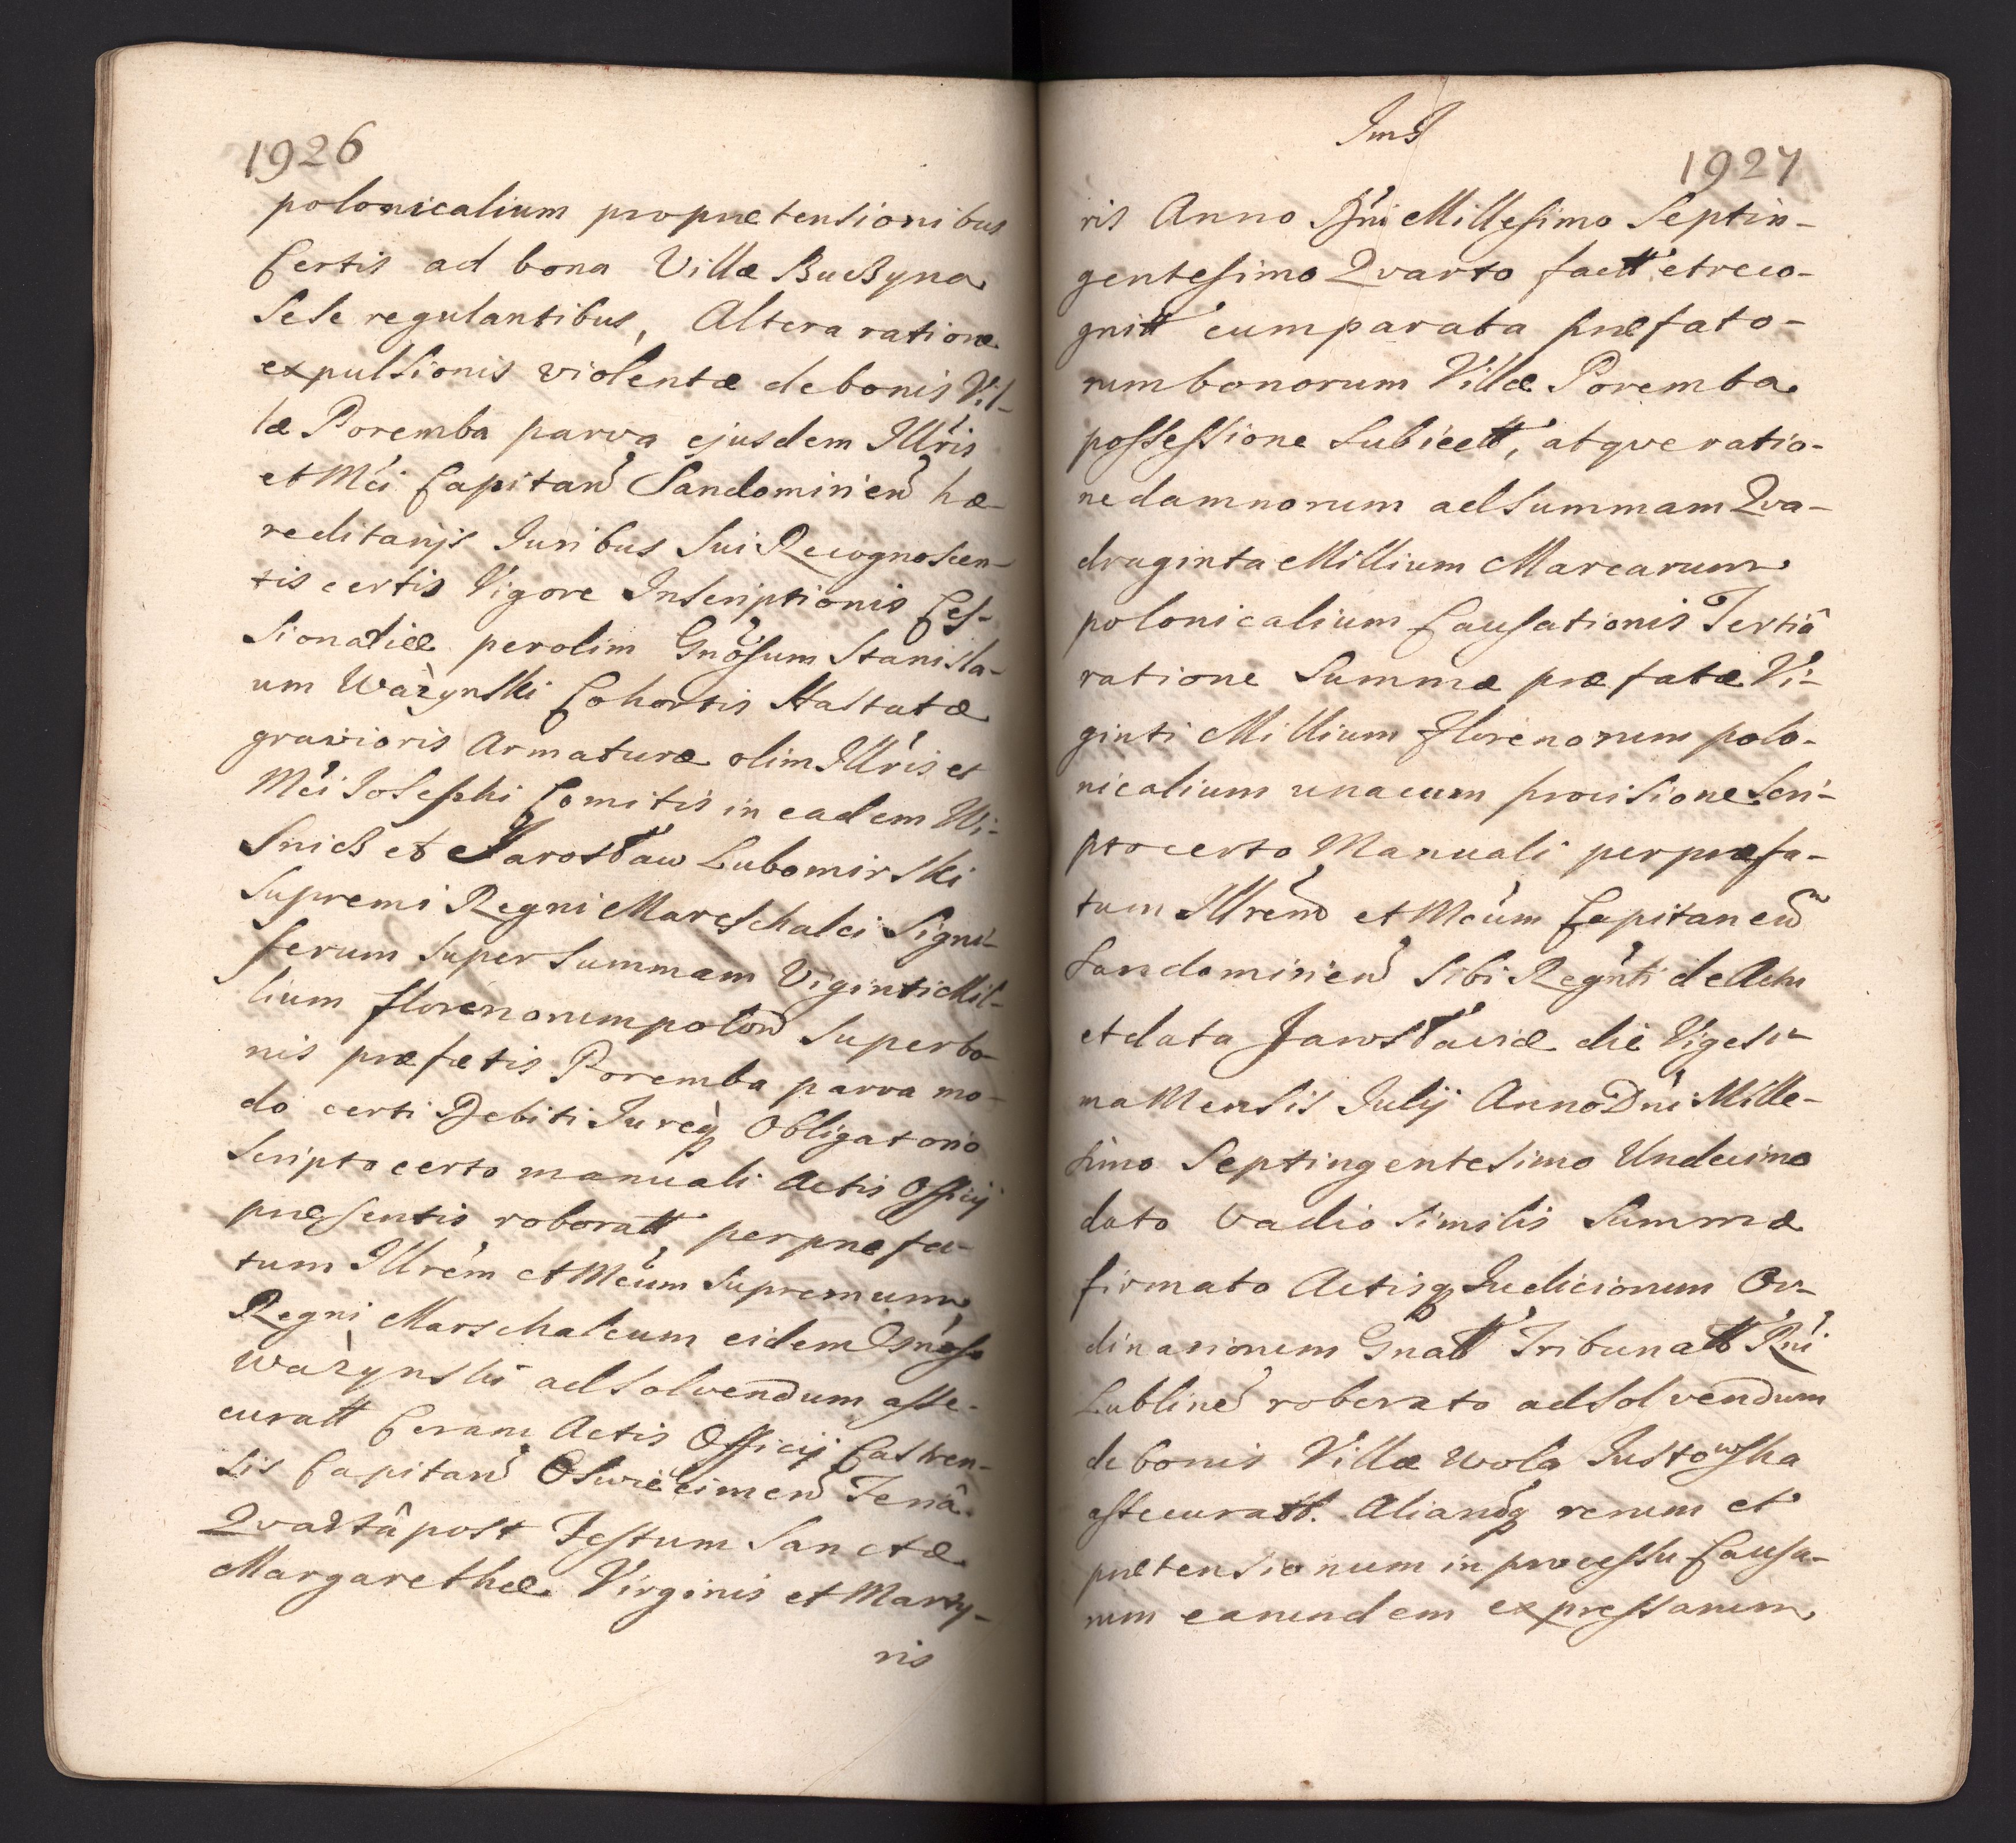 1926
polonicalium proprætensionibus
Certis ad bona Villæ Buczyna
Sese regulantibus, Altera ratione
expulsionis violentæ debonis Vil-
læ Poremba parva ejusdem Illris
et Mci Capitan Sandomirien hæ-
reditarijs Juribus Sui Recognoscen-
tis certis Vigore Inscriptionis Ces-
sionaliæ perolim Gnosum Stanisla-
um Warzynski Cohortis Hastatæ
gravioris Armaturæ olim Illris et
Mci Josephi Comitis in eadem Wi-
snicz et Jarosław Lubomirski
Supremi Regni Mareschalci Signi-
ferum super Summam Viginti Mil-
lium florenorum polon Superbo-
nis præfatis Poremba parva mo-
do certi Debiti Jureq Obligatorio
Scripto certo manuali Actis Officij
præsentis roboratt perpræfa-
tum Illrem et Mcum Supremum
Regni Marschalcum eidem Gnoso
Warzynski adsolvendum asse-
curatt Coram Actis Officij Castren-
sis Capitan Oswiecimen Feriâ
Qvartâ post Festum Sanctæ
Margarethæ Virginis et Marty-
ris
JmJ
1927
ris Anno Dni Millesimo Septin-
gentesimo Qvarto factt etreco-
gnitt cumparata præfato-
rum bonorum Villæ Poremba
possessione Subiectt, atqve ratio-
ne damnorum adsummam Qva-
draginta Millium Marcarum
polonicalium Causationis Tertiâ
ratione Summæ præfatæ Vi-
ginti Millium florenorum polo-
nicalium unacum provisione Scri-
pto certo Manuali perpræfa-
tum Illrem et Mcum Capitaneum
Sandomirien Sibi Regnti de Actu
et data Jarosłaviæ die Vigesi-
ma Mensis Julij Anno Dni Mille-
simo Septingentesimo Undecimo
dato Vadio similis Summæ
firmato Actisq Judiciorum Or-
dinariorum Gnatt Tribunatt Rni
Lublinen roborato adsolvendum
debonis Villæ Wola Justowska
assecuratt. Aliarumq rerum et
prætensionum in processu Causa-
rum earundem expressarum